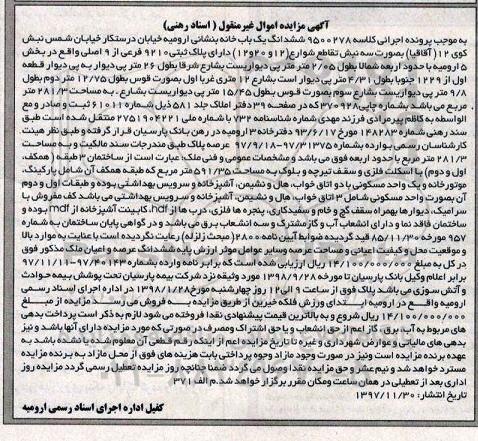 آگهی مزایده اموال غیرمنقول (اسناد رهنی)
به موجب پرونده اجرایی کلاسه ۹۵۰۰۲۷۸ ششدانگ یک باب خانه بنشانی ارومیه خیابان درستکار خیابان شمس نبش
کوی ۱۲ (آقاقیا) بصورت سه نبش تقاطع شوارع (۱۲ و ۲۰ و ۱۲) دارای پلاک ثبتی ۹۲۱۰ فرعی از ۹ اصلی واقع در بخش
۵ ارومیه با حدود اربعه شمالا بطول ۲/۰۵ متر متر پی دیواریست بشارع شرقا بطول ۲۶ متر پی دیوار به پی دیوار قطعه
اول از ۱۲۲۹ جنوبا بطول ۴/۳۱ متر پی دیوار است بشارع ۱۲ متری غربا اول بصورت قوس بطول ۱۲/۷۵ متر دوم بطول
۹/۸ متر پی دیواریست بشارع سوم بصورت قوس بطول ۱۵/۴۵ متر پی دیواریست بشارع . به مساحت ۲۸۱/۳ متر
مربع می باشد . با شماره چاپی ۳۷۰۹۲۸ که در صفحه ۳۹ دفتر املاک جلد ۵۸۱ ذیل شماره ۶۱۰۱۱ ثبت و صادر و مع
الواسطه به کاظم پیرمرادی فرزند مهدی شماره شناسنامه ۷۳۲ با شماره ملی ۲۷۵۱۹۰۴۲۲۱ منتقل شده است طبق
سند رهنی شماره ۱۴۸۲۸۳ مورخ ۹۳/۶/۱۷ دفترخانه ۳ ارومیه در رهن بانک پارسیان قرار گرفته و طبق نظر هیئت
کارشناسان رسمی بوارده بشماره ۹۷/۳۱۳۷۵-۹۷/۹/۱۸ عرصه پلاک طبق مندرجات سند مالکیت و به مساحت
۲۸۱/۳ متر مربع با حدود اربعه فوق می باشد و مشخصات عمومی و فنی ملک: عبارت است از ساختمان ۳ طبقه (همکف،
اول و دوم) با اسکلت فلزی و سقف تیرچه و بلوک به مساحت ۵۹۱/۳۵ متر مربع که طبقه همکف آن شامل پارکینگ،
موتورخانه و یک واحد مسکونی با دو اتاق خواب، هال و نشیمن، آشپزخانه و سرویس بهداشتی بوده و طبقات اول و دوم
آن بصورت واحد مسکونی شامل ۳ اتاق خواب، هال و نشیمن، آشپزخانه و سرویس بهداشتی می باشد کف مفروش با
سرامیک، دیوارها بهمراه سقف گچ و خام و سفیدکاری، پنجره ها فلزی، درب ها از hdf، کابینت آشپزخانه از mdf بوده و
ساختمان فاقد نما و دارای انشعاب آب و گاز مشترک و سه انشعاب برق می باشد و در گواهی پایان ساختمان به شماره
۹۵۷ مورخه ۸۵/۱۱/۳۰ قید گردیده ضوابط آیین نامه ۲۸۰۰ (مبحث زلزله) رعایت نگردیده است با عنایت به موارد بالا
و موقعیت محل و کیفیت اعیانی و مساحت عرصه و سایر عوامل موثر ارزش پایه ششدانگ عرصه و اعیان ملک مذکور فوق
در کل به مبلغ ۱۴/۱۰۰/۰۰۰/۰۰۰ ریال ارزیابی شده است که برابر نامه وارده بشماره ۹۷/۴۰۱۴۳-۹۷/۱۱/۱۱
برابر اعلام وکیل بانک پارسیان تا مورخه ۱۳۹۸/۹/۲۸ مورد وثیقه نزد شرکت بیمه پارسیان تحت پوشش بیمه حوادث
و آتش سوزی می باشد پلاک فوق از ساعت ۹ الی ۱۲ روز چهارشنبه مورخ ۱۳۹۸/۱/۲۸ در اداره اجرای اسناد رسمی
ارومیه واقع در ارومیه ابتدای ورزش فلکه خیبر از طریق مزایده به فروش می رسد مزایده از مبلغ
۱۴/۱۰۰/۰۰۰/۰۰۰ ریال شروع و به بالاترین قیمت پیشنهادی نقدا فروخته می شود لازم به ذکر است پرداخت بدهی
های مربوط به آب، برق، گاز اعم از حق انشعاب و یا حق اشتراک و مصرف در صورتی که مورد مزایده دارای آنها باشد و نیز
بدهی های مالیاتی و عوارض شهرداری و غیره تا تاریخ مزایده اعم از اینکه رقم قطعی آن معلوم شده یا نشده باشد به
عهده برنده مزایده است و نیز در صورت وجود مازاد وجوه پرداختی بابت هزینه های فوق از محل مازاد به برنده مزایده
مسترد خواهد شد و نیم عشر و حق مزایده نقدا وصول می گردد ضمنا چنانچه روز مزایده تعطیل رسمی گردد مزایده روز
اداری بعد از تعطیلی در همان ساعت و مکان مقرر برگزار خواهد شد. م الف ۳۷۱
تاریخ انتشار: ۱۳۹۷/۱۱/۳۰
کفیل اداره اجرای اسناد رسمی ارومیه